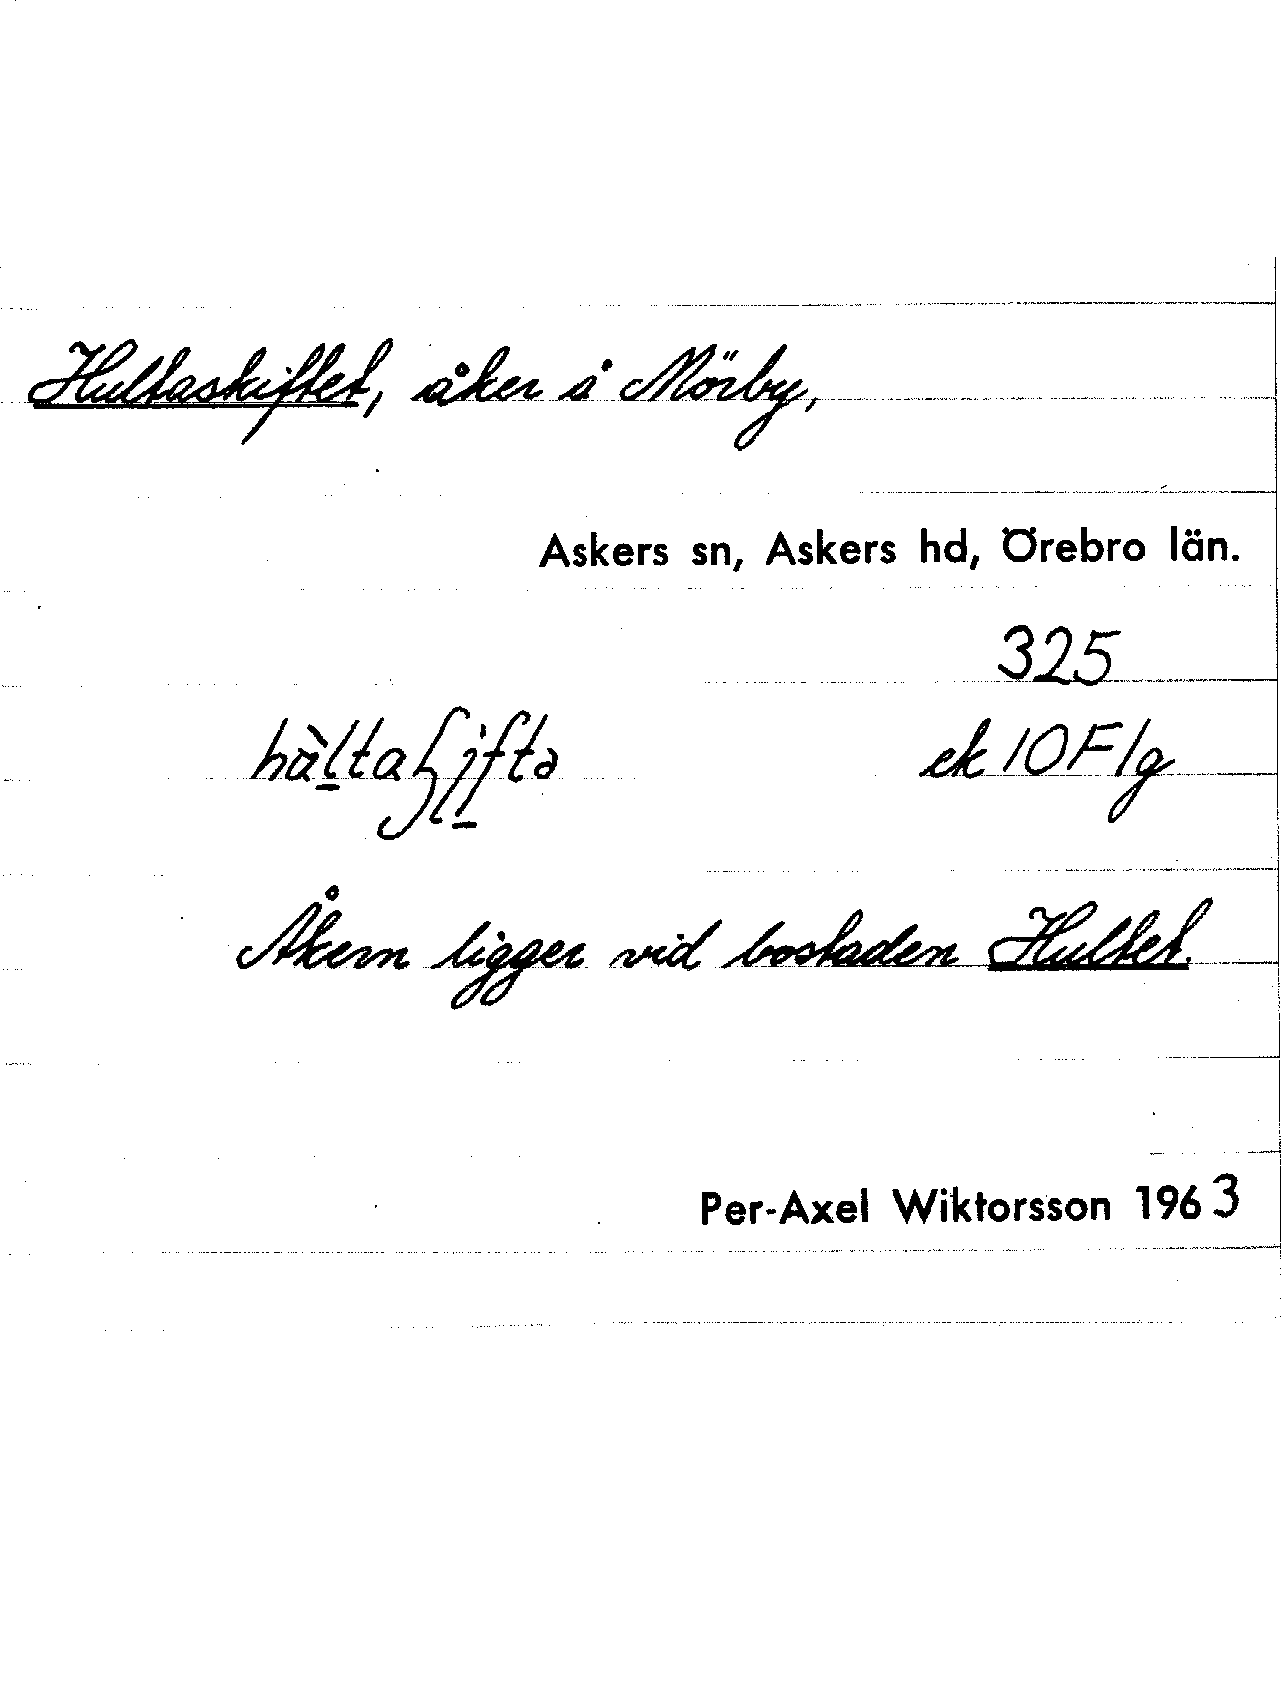 Hultaskiftet, åker å Mörby,
Askers sn, Askers hd, Örebro län.
325
ek 10 F/g
Åkern ligger vid bostaden Hultet.
Per-Axel Wiktorsson 1963